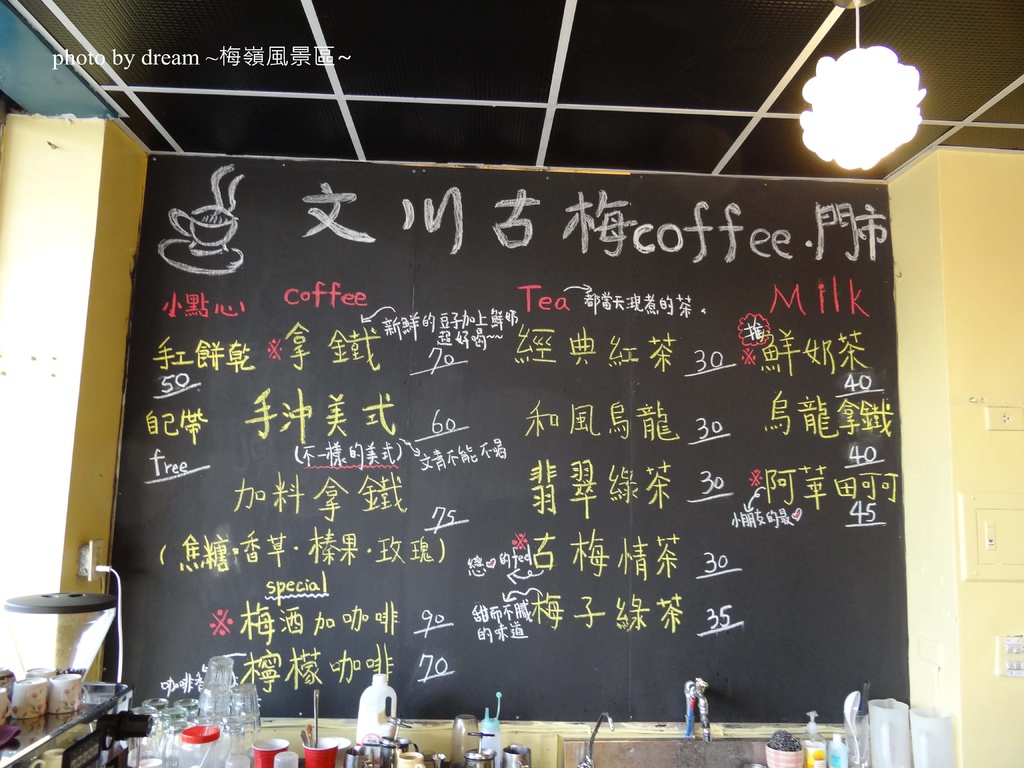 photo by dream ~梅嶺風景區~
文川古梅coffee.門市
小點心
手工餅乾
50
自己帶
free
coffee
新鮮的豆子加上鮮奶
超好喝~~
※拿鐵 70
手沖美式 60
(不一樣的美式) 文青不能不喝
加料拿鐵 75
(焦糖·香草·榛果·玫瑰)
special
※梅酒加咖啡 90
檸檬咖啡 70
咖啡香
Tea 都當天現煮的茶。
經典紅茶 30
和風烏龍 30
翡翠綠茶 30
※古梅情茶 30
戀♡的tea
梅子綠茶 35
甜而不膩
的味道
Milk
推
※鮮奶茶
40
烏龍拿鐵
40
※阿華田可可
45
小朋友的最♡